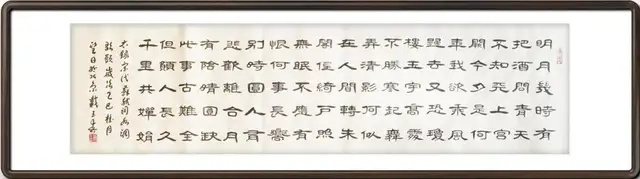 明月幾時有
把酒問青天
不知天上宮
闕今夕是何
年我欲乘風
歸去又恐瓊
樓玉宇高處
不勝寒起舞
弄清影何似
在人間轉朱
閣低綺戶照
無眠不應有
恨何事長嚮
別時圓人有
悲歡離合月
有陰晴圓缺
此事古難全
但願人長久
千里共嬋娟
右錄宋代蘇軾詞水調
歌頭歲次乙巳桂月
望日於北京戴